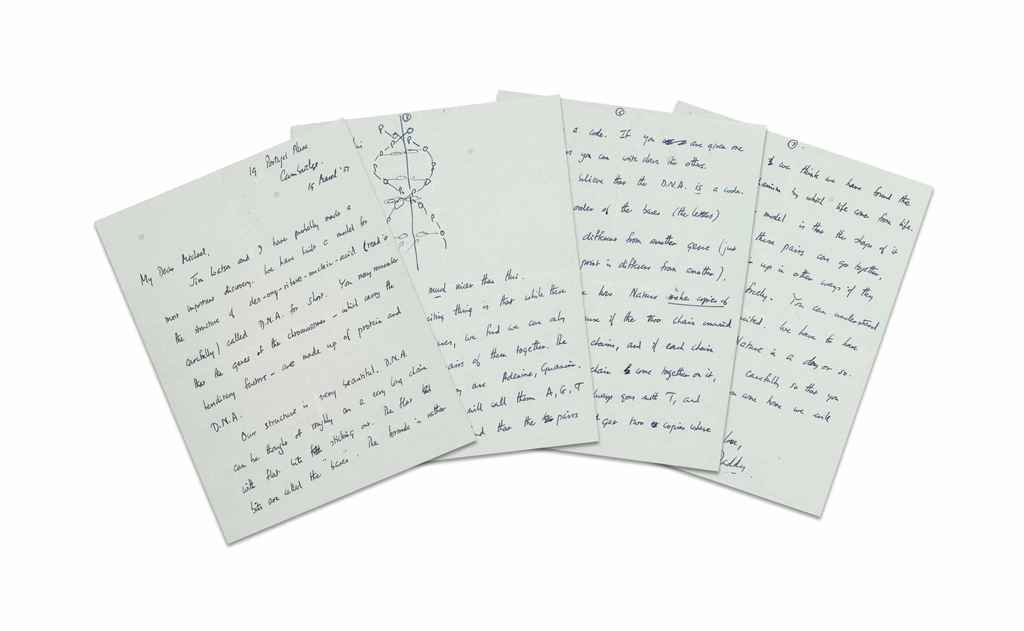 19 Portugal Place
Cambridge.
19 March '53
My Dear Michael,
Jim Watson and I have probably made a
most important discovery. We have built a model for
the structure of des-oxy-ribose-nucleic-acid (read it
carefully) called D.N.A. for short. You may remember
that the genes of the chromosomes - which carry the
hereditary factors - are made up of protein and
D.N.A.
Our structure is very beautiful. D.N.A.
can be thought of roughly as a very long chain
with flat bits sticking out. The flat
bits are called the "bases". The formula is rather
P
P
P
P
P
much nicer than this.
citing thing is that while there
ses, we find we can only
airs of them together. The
are Adenine, Guanine,
will call them A, G, T
nd that the pairs
6
a code. If you are given one
s you can write down the other.
believe that the D.N.A. is a code.
order of the bases (the letters)
different from another gene (just
print is different from another).
how Nature makes copies of
use if the two chains unwind
chains, and if each chain
chain come together on it,
always goes with T, and
get two copies where
7
we think we have found the
anism by which life comes from life.
model is that the shape of it
these pairs can go together,
up in other ways if they
freely. You can understand
cited. We have to have
Nature in a day or so.
carefully so that you
n you come home we will
love,
Daddy